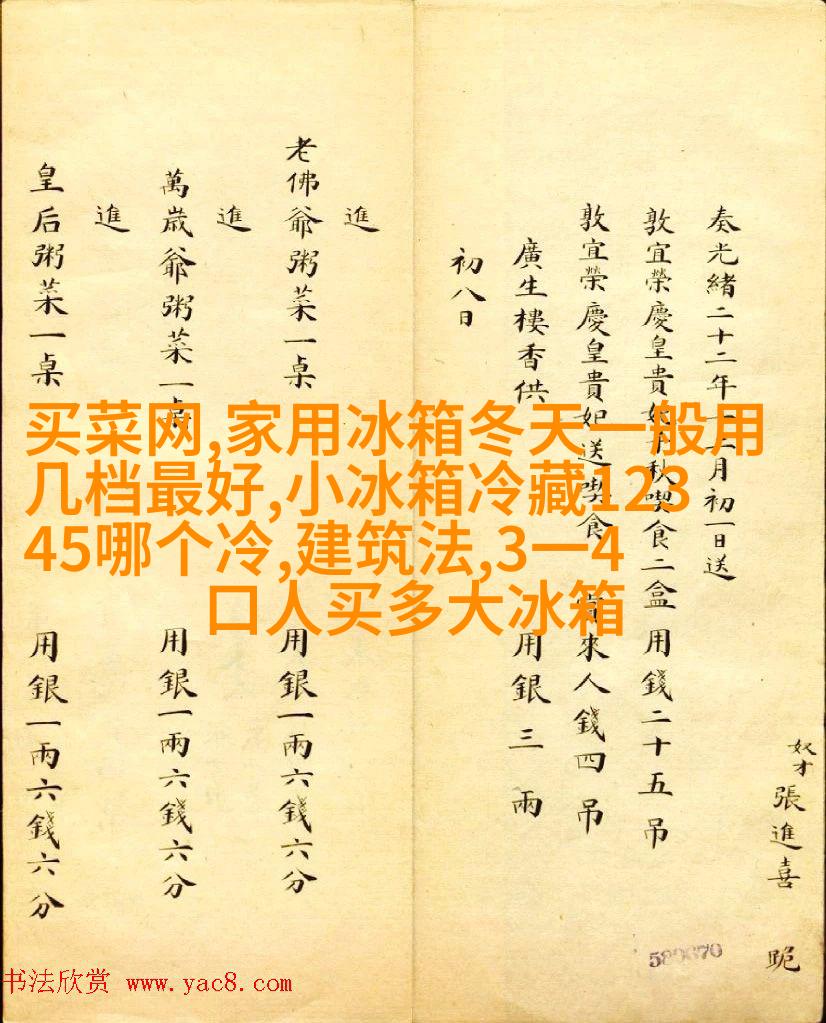 奴才張進喜 跪
奏光緒二十二年十二月初一日送
敦宜榮慶皇貴妃千秋喫食二盒用錢二十五吊
敦宜榮慶皇貴妃送喫食 賞來人錢四吊
廣生樓香供 用銀三兩
初八日
進
老佛爺粥菜一桌 用銀一兩六錢六分
進
萬歲爺粥菜一桌 用銀一兩六錢六分
進
皇后粥菜一桌 用銀一兩六錢六分
买菜网,家用冰箱冬天一般用
几档最好,小冰箱冷藏123
45哪个冷,建筑法,3一4
口人买多大冰箱
580670
书法欣赏 www.yac8.com